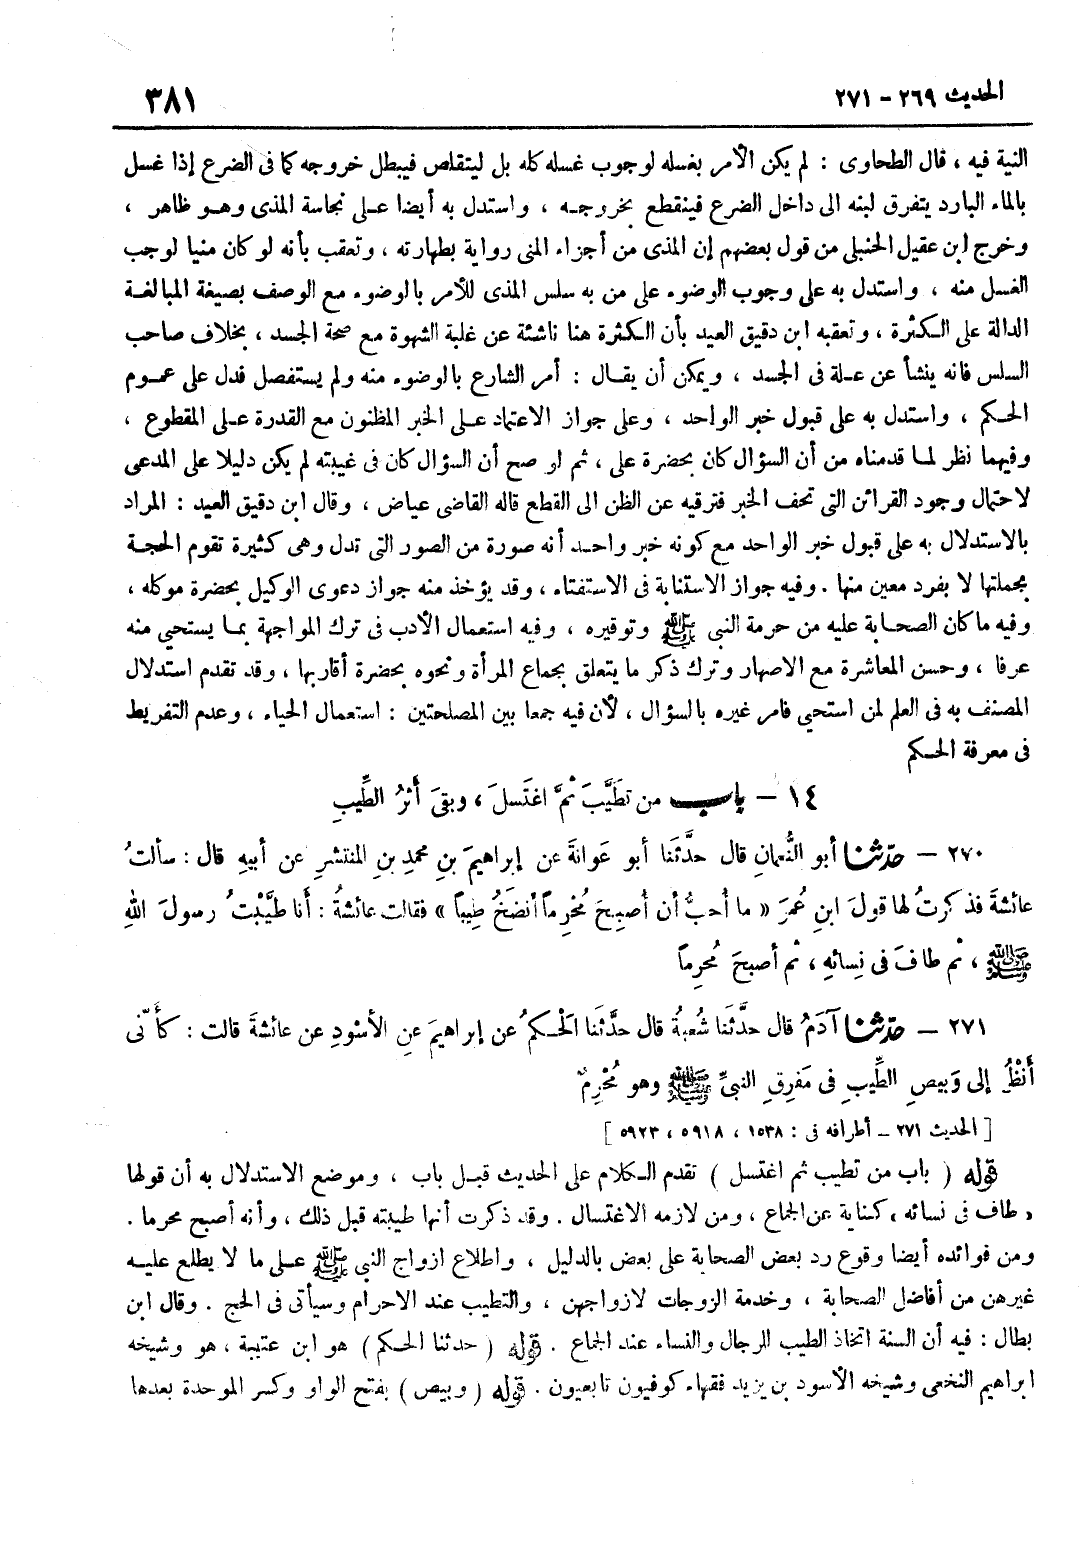 الحديث ٢٦٩ - ٢٧١
٣٨١
النية فيه ، قال الطحاوى : لم يكن الأمر بغسله لوجوب غسله كله بل ليتقلص فيبطل خروجه كما فى الضرع إذا غسل
بالماء البارد يتفرق لبنه الى داخل الضرع فينقطع بخروجه ، واستدل به أيضا على نجاسة المذى وهو ظاهر ،
وخرج ابن عقيل الحنبلى من قول بعضهم إن المذى من أجزاء المنى رواية بطهارته ، وتعقب بأنه لو كان منيا لوجب
الغسل منه ، واستدل به على وجوب الوضوء على من به سلس المذى للأمر بالوضوء مع الوصف بصيغة المبالغة
الدالة على الكثرة ، وتعقبه ابن دقيق العيد بأن الكثرة هنا ناشئة عن غلبة الشهوة مع صحة الجسد ، بخلاف صاحب
السلس فانه ينشأ عن علة فى الجسد ، ويمكن أن يقال : أمر الشارع بالوضوء منه ولم يستفصل فدل على عموم
الحكم ، واستدل به على قبول خبر الواحد ، وعلى جواز الاعتماد على الخبر المظنون مع القدرة على المقطوع ،
وفيهما نظر لما قدمناه من أن السؤال كان بحضرة على ، ثم لو صح أن السؤال كان فى غيبته لم يكن دليلا على المدعى
لاحتمال وجود القرائن التى تحف الخبر فترقيه عن الظن الى القطع قاله القاضى عياض ، وقال ابن دقيق العيد : المراد
بالاستدلال به على قبول خبر الواحد مع كونه خبر واحد أنه صورة من الصور التى تدل وهى كثيرة تقوم الحجة
بجملتها لا بفرد معين منها . وفيه جواز الاستنابة فى الاستفتاء ، وقد يؤخذ منه جواز دعوى الوكيل بحضرة موكله ،
وفيه ما كان الصحابة عليه من حرمة النبى ﷺ وتوقيره ، وفيه استعمال الأدب فى ترك المواجهة بما يستحيى منه
عرفا ، وحسن المعاشرة مع الاصهار وترك ذكر ما يتعلق بجماع المرأة ونحوه بحضرة أقاربها ، وقد تقدم استدلال
المصنف به فى العلم لمن استحيى فامر غيره بالسؤال ، لأن فيه جمعا بين المصلحتين : استعمال الحياء ، وعدم التفريط
فى معرفة الحكم
١٤ - باب من تطَيَّبَ ثمَّ اغتَسلَ ، وبقىَ أثرُ الطِّيبِ
٢٧٠ - حدّثنا أبو النُّعمانِ قال حدَّثَنا أبو عَوانةَ عن إبراهيمَ بنِ محمدِ بنِ المنتشرِ عن أبيهِ قال : سألتُ
عائشةَ فذكرتُ لها قولَ ابنِ عُمرَ « ما أُحبُّ أن أُصبِحَ مُحرِماً أنضَخُ طِيباً » فقالت عائشةُ : أنا طيَّبْتُ رسولَ اللهِ
ﷺ ، ثم طافَ فى نِسائهِ ، ثم أصبحَ مُحرِماً
٢٧١ - حدّثنا آدَمُ قال حدَّثَنا شُعبةُ قال حدَّثَنا الْحَكمُ عن إبراهيمَ عنِ الأسْودِ عن عائشةَ قالت : كأَنّى
أَنْظُرُ إلى وَبيصِ الطِّيبِ فى مَفرِقِ النبىِّ ﷺ وهو مُحْرِمٌ
[ الحديث ٢٧١ - أطرافه فى : ١٥٣٨ ، ٥٩١٨ ، ٥٩٢٣ ]
قوله ( باب من تطيب ثم اغتسل ) تقدم الكلام على الحديث قبل باب ، وموضع الاستدلال به أن قولها
« طاف فى نسائه » كناية عن الجماع ، ومن لازمه الاغتسال . وقد ذكرت أنها طيبته قبل ذلك ، وأنه أصبح محرما .
ومن فوائده أيضا وقوع رد بعض الصحابة على بعض بالدليل ، واطلاع ازواج النبى ﷺ على ما لا يطلع عليه
غيرهن من أفاضل الصحابة ، وخدمة الزوجات لازواجهن ، والتطيب عند الاحرام وسيأتى فى الحج . وقال ابن
بطال : فيه أن السنة اتخاذ الطيب للرجال والنساء عند الجماع . قوله ( حدثنا الحكم ) هو ابن عتيبة ، هو وشيخه
ابراهيم النخعى وشيخه الأسود بن يزيد فقهاء كوفيون تابعيون . قوله ( وبيص ) بفتح الواو وكسر الموحدة بعدها